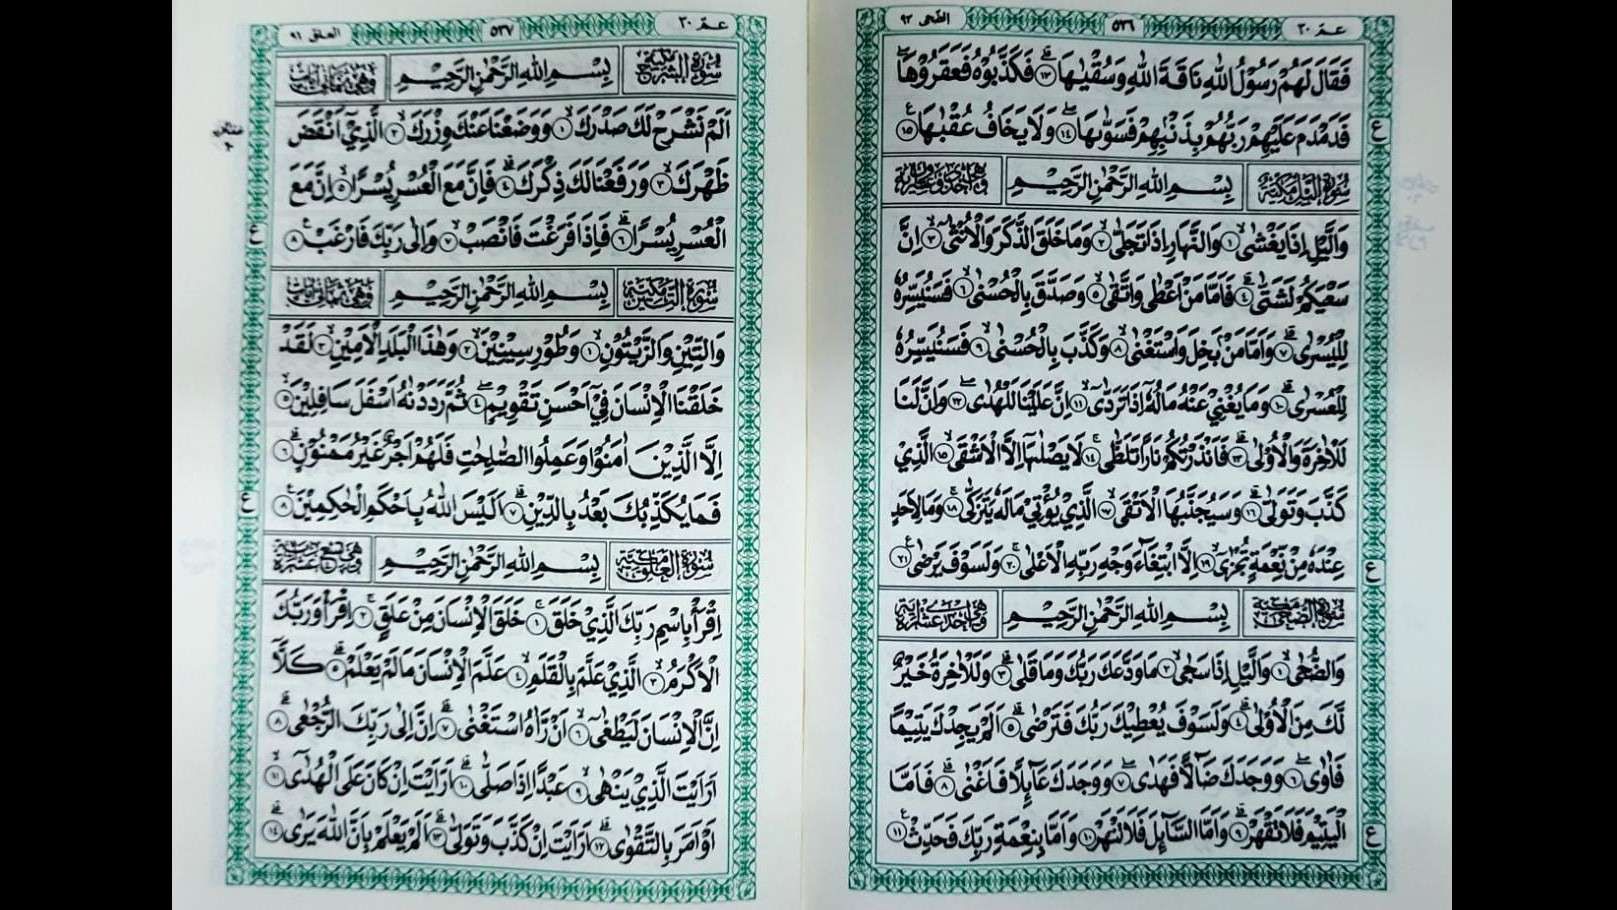 عمّ ٣٠
٥٣٦
الضحى ٩٣
فَقَالَ لَهُمْ رَسُوْلُ اللّٰهِ نَاقَةَ اللّٰهِ وَسُقْيٰهَا ۗ ١٣ فَكَذَّبُوْهُ فَعَقَرُوْهَا
فَدَمْدَمَ عَلَيْهِمْ رَبُّهُمْ بِذَنْۢبِهِمْ فَسَوّٰىهَا ١٤ وَلَا يَخَافُ عُقْبٰهَا ١٥
سُوْرَةُ الَّيْلِ مَكِّيَّةٌ بِسْمِ اللّٰهِ الرَّحْمٰنِ الرَّحِيْمِ وَهِيَ اِحْدٰى وَعِشْرُوْنَ اٰيَةً
وَالَّيْلِ اِذَا يَغْشٰى ١ وَالنَّهَارِ اِذَا تَجَلّٰى ٢ وَمَا خَلَقَ الذَّكَرَ وَالْاُنْثٰى ٣ اِنَّ
سَعْيَكُمْ لَشَتّٰى ٤ فَاَمَّا مَنْ اَعْطٰى وَاتَّقٰى ٥ وَصَدَّقَ بِالْحُسْنٰى ٦ فَسَنُيَسِّرُهٗ
لِلْيُسْرٰى ٧ وَاَمَّا مَنْۢ بَخِلَ وَاسْتَغْنٰى ٨ وَكَذَّبَ بِالْحُسْنٰى ٩ فَسَنُيَسِّرُهٗ
لِلْعُسْرٰى ١٠ وَمَا يُغْنِيْ عَنْهُ مَالُهٗٓ اِذَا تَرَدّٰى ١١ اِنَّ عَلَيْنَا لَلْهُدٰى ١٢ وَاِنَّ لَنَا
لَلْاٰخِرَةَ وَالْاُوْلٰى ١٣ فَاَنْذَرْتُكُمْ نَارًا تَلَظّٰى ١٤ لَا يَصْلٰىهَآ اِلَّا الْاَشْقَى ١٥ الَّذِيْ
كَذَّبَ وَتَوَلّٰى ١٦ وَسَيُجَنَّبُهَا الْاَتْقَى ١٧ الَّذِيْ يُؤْتِيْ مَالَهٗ يَتَزَكّٰى ١٨ وَمَا لِاَحَدٍ
عِنْدَهٗ مِنْ نِّعْمَةٍ تُجْزٰٓى ١٩ اِلَّا ابْتِغَآءَ وَجْهِ رَبِّهِ الْاَعْلٰى ٢٠ وَلَسَوْفَ يَرْضٰى ٢١
سُوْرَةُ الضُّحٰى مَكِّيَّةٌ بِسْمِ اللّٰهِ الرَّحْمٰنِ الرَّحِيْمِ وَهِيَ اِحْدٰى عَشْرَةَ اٰيَةً
وَالضُّحٰى ١ وَالَّيْلِ اِذَا سَجٰى ٢ مَا وَدَّعَكَ رَبُّكَ وَمَا قَلٰى ٣ وَلَلْاٰخِرَةُ خَيْرٌ
لَّكَ مِنَ الْاُوْلٰى ٤ وَلَسَوْفَ يُعْطِيْكَ رَبُّكَ فَتَرْضٰى ٥ اَلَمْ يَجِدْكَ يَتِيْمًا
فَاٰوٰى ٦ وَوَجَدَكَ ضَآلًّا فَهَدٰى ٧ وَوَجَدَكَ عَآئِلًا فَاَغْنٰى ٨ فَاَمَّا
الْيَتِيْمَ فَلَا تَقْهَرْ ٩ وَاَمَّا السَّآئِلَ فَلَا تَنْهَرْ ١٠ وَاَمَّا بِنِعْمَةِ رَبِّكَ فَحَدِّثْ ١١
عمّ ٣٠
٥٣٧
العلق ٩٦
سُوْرَةُ الشَّرْحِ مَكِّيَّةٌ بِسْمِ اللّٰهِ الرَّحْمٰنِ الرَّحِيْمِ وَهِيَ ثَمَانِيْ اٰيَاتٍ
اَلَمْ نَشْرَحْ لَكَ صَدْرَكَ ١ وَوَضَعْنَا عَنْكَ وِزْرَكَ ٢ الَّذِيْٓ اَنْقَضَ
ظَهْرَكَ ٣ وَرَفَعْنَا لَكَ ذِكْرَكَ ٤ فَاِنَّ مَعَ الْعُسْرِ يُسْرًا ٥ اِنَّ مَعَ
الْعُسْرِ يُسْرًا ٦ فَاِذَا فَرَغْتَ فَانْصَبْ ٧ وَاِلٰى رَبِّكَ فَارْغَبْ ٨
سُوْرَةُ التِّيْنِ مَكِّيَّةٌ بِسْمِ اللّٰهِ الرَّحْمٰنِ الرَّحِيْمِ وَهِيَ ثَمَانِيْ اٰيَاتٍ
وَالتِّيْنِ وَالزَّيْتُوْنِ ١ وَطُوْرِ سِيْنِيْنَ ٢ وَهٰذَا الْبَلَدِ الْاَمِيْنِ ٣ لَقَدْ
خَلَقْنَا الْاِنْسَانَ فِيْٓ اَحْسَنِ تَقْوِيْمٍ ٤ ثُمَّ رَدَدْنٰهُ اَسْفَلَ سَافِلِيْنَ ٥
اِلَّا الَّذِيْنَ اٰمَنُوْا وَعَمِلُوا الصّٰلِحٰتِ فَلَهُمْ اَجْرٌ غَيْرُ مَمْنُوْنٍ ٦
فَمَا يُكَذِّبُكَ بَعْدُ بِالدِّيْنِ ٧ اَلَيْسَ اللّٰهُ بِاَحْكَمِ الْحٰكِمِيْنَ ٨
سُوْرَةُ الْعَلَقِ مَكِّيَّةٌ بِسْمِ اللّٰهِ الرَّحْمٰنِ الرَّحِيْمِ وَهِيَ تِسْعَ عَشْرَةَ اٰيَةً
اِقْرَأْ بِاسْمِ رَبِّكَ الَّذِيْ خَلَقَ ١ خَلَقَ الْاِنْسَانَ مِنْ عَلَقٍ ٢ اِقْرَأْ وَرَبُّكَ
الْاَكْرَمُ ٣ الَّذِيْ عَلَّمَ بِالْقَلَمِ ٤ عَلَّمَ الْاِنْسَانَ مَا لَمْ يَعْلَمْ ٥ كَلَّآ
اِنَّ الْاِنْسَانَ لَيَطْغٰٓى ٦ اَنْ رَّاٰهُ اسْتَغْنٰى ٧ اِنَّ اِلٰى رَبِّكَ الرُّجْعٰى ٨
اَرَاَيْتَ الَّذِيْ يَنْهٰى ٩ عَبْدًا اِذَا صَلّٰى ١٠ اَرَاَيْتَ اِنْ كَانَ عَلَى الْهُدٰٓى ١١
اَوْ اَمَرَ بِالتَّقْوٰى ١٢ اَرَاَيْتَ اِنْ كَذَّبَ وَتَوَلّٰى ١٣ اَلَمْ يَعْلَمْ بِاَنَّ اللّٰهَ يَرٰى ١٤